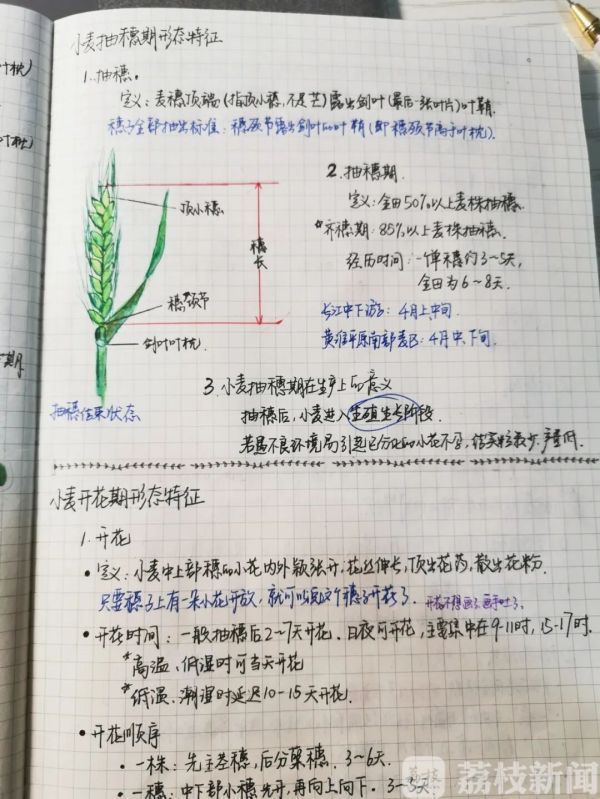 小麦抽穗期形态特征
1.抽穗。
定义:麦穗顶端(指顶小穗,不是芒)露出剑叶(最后一张叶片)叶鞘.
穗子全部抽出标准:穗颈节露出剑叶的叶鞘(即穗颈节高于叶枕).
顶小穗
穗长
穗颈节
剑叶叶枕
抽穗结束状态
2.抽穗期.
定义:全田50%以上麦株抽穗.
*齐穗期:85%以上麦株抽穗.
经历时间:一单穗约3~5天,
全田为6~8天.
长江中下游:4月上、中旬
黄淮平原南部麦区:4月中、下旬.
3.小麦抽穗期在生产上的意义
抽穗后,小麦进入生殖生长阶段.
若遇不良环境易引起已分化的小花不孕,结实粒数少,产量低.
小麦开花期形态特征
1.开花
•定义:小麦中上部穗的小花内外颖张开,花丝伸长,顶出花药,散出花粉.
只要穗子上有一朵小花开放,就可以说这个穗子开花了.
开花不想画了,画手吐了.
•开花时间:一般抽穗后2~7天开花.日夜可开花,主要集中在9-11时,15-17时.
*高温、低湿时可当天开花
*低温、潮湿时延迟10-15天开花.
•开花顺序
•一株:先主茎穗,后分蘖穗.3~6天.
•一穗:中下部小穗先开,再向上向下.3~5天.
叶枕)
期
荔枝新闻